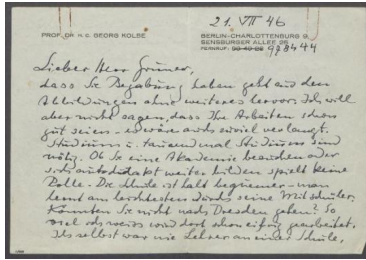 21. VII 46
PROF. DR. H. C. GEORG KOLBE
BERLIN-CHARLOTTENBURG 9
SENSBURGER ALLEE 26
FERNRUF: 99 40 26 998444
Lieber Herr Grüner,
dass Sie Begabung haben geht aus den
Abbildungen ohne weiteres hervor. Ich will
aber nicht sagen, dass Ihre Arbeiten schon
gut seien – es wäre auch zuviel verlangt.
Studium u. tausendmal Studium sind
nötig. Ob Sie eine Akademie besuchen oder
sich autodidakt weiter bilden spielt keine
Rolle – Die Schule ist halt bequemer – man
lernt am leichtesten durch seine Mitschüler.
Könnten Sie nicht nach Dresden gehen? So
viel ich weiss wird dort schon eifrig gearbeitet.
Ich selbst war nie Lehrer an einer Schule,